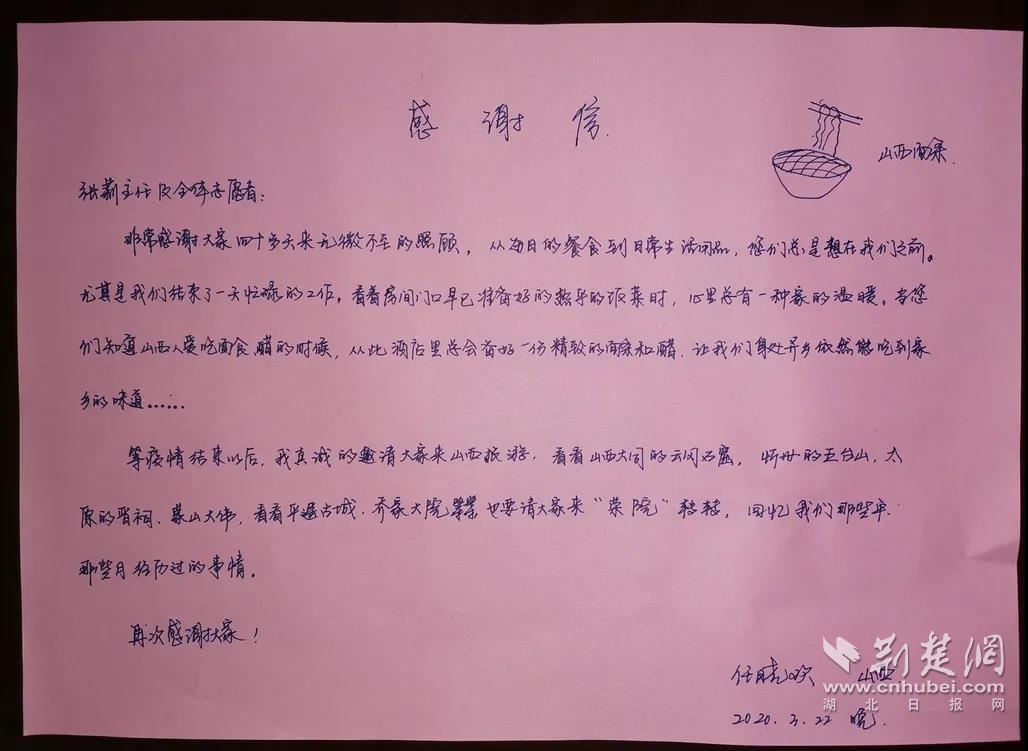 感 谢 信.
山西面条.
张莉主任及全体志愿者:
非常感谢大家四十多天来无微不至的照顾，从每日的餐食到日常生活用品，您们总是想在我们之前。
尤其是我们结束了一天忙碌的工作。看着房间门口早已准备好的热乎的饭菜时，心里总有一种家的温暖。当您
们知道山西人爱吃面食、醋的时候，从此酒店里总会备好一份精致的面条和醋.让我们身处异乡依然能吃到家
乡的味道……
等疫情结束以后，我真诚的邀请大家来山西旅游，看看山西大同的云冈石窟，忻州的五台山，太
原的晋祠、蒙山大佛，看看平遥古城.乔家大院 也要请大家来“荣院”转转，回忆我们那些年.
那些月经历过的事情。
再次感谢大家!
任晓欢 山西
2020.3.22 晚.
荆楚網
www.cnhubei.com
湖北日报网